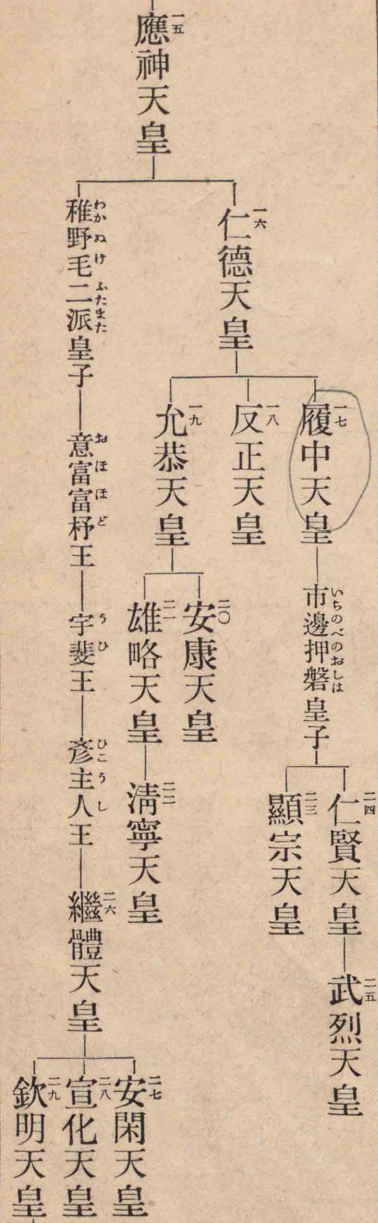 一五
應神天皇
一六
仁德天皇
一七
履中天皇
市邊押磐皇子
いちのべのおしは
二四
仁賢天皇
二五
武烈天皇
二三
顯宗天皇
一八
反正天皇
一九
允恭天皇
二〇
安康天皇
二一
雄略天皇
二二
淸寧天皇
稚野毛二派皇子
わかぬけふたまた
意富富杼王
おほほど
宇斐王
うひ
彥主人王
ひこうし
二六
繼體天皇
二七
安閑天皇
二八
宣化天皇
二九
欽明天皇